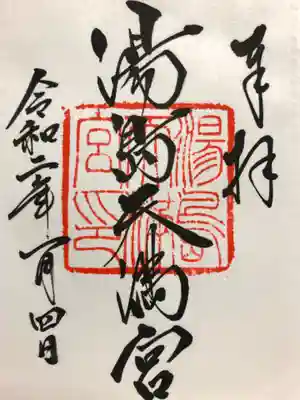 奉拝
湯島天満宮
令和二年一月四日